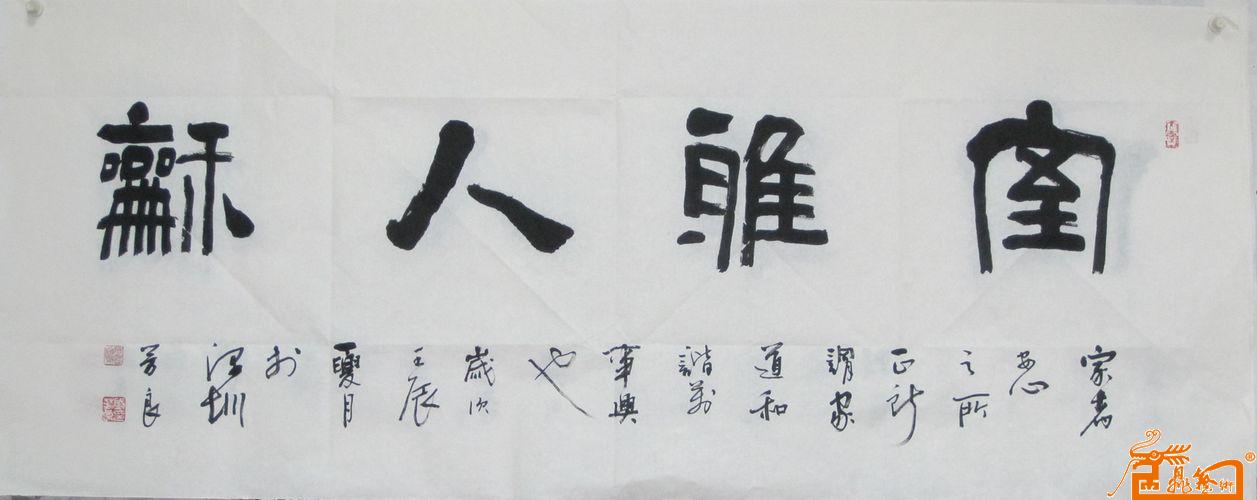 室雅人龢
家者
安心
之所
正所
謂家
道和
諧萬
事興
也
歲次
壬辰
夏月
於
深圳